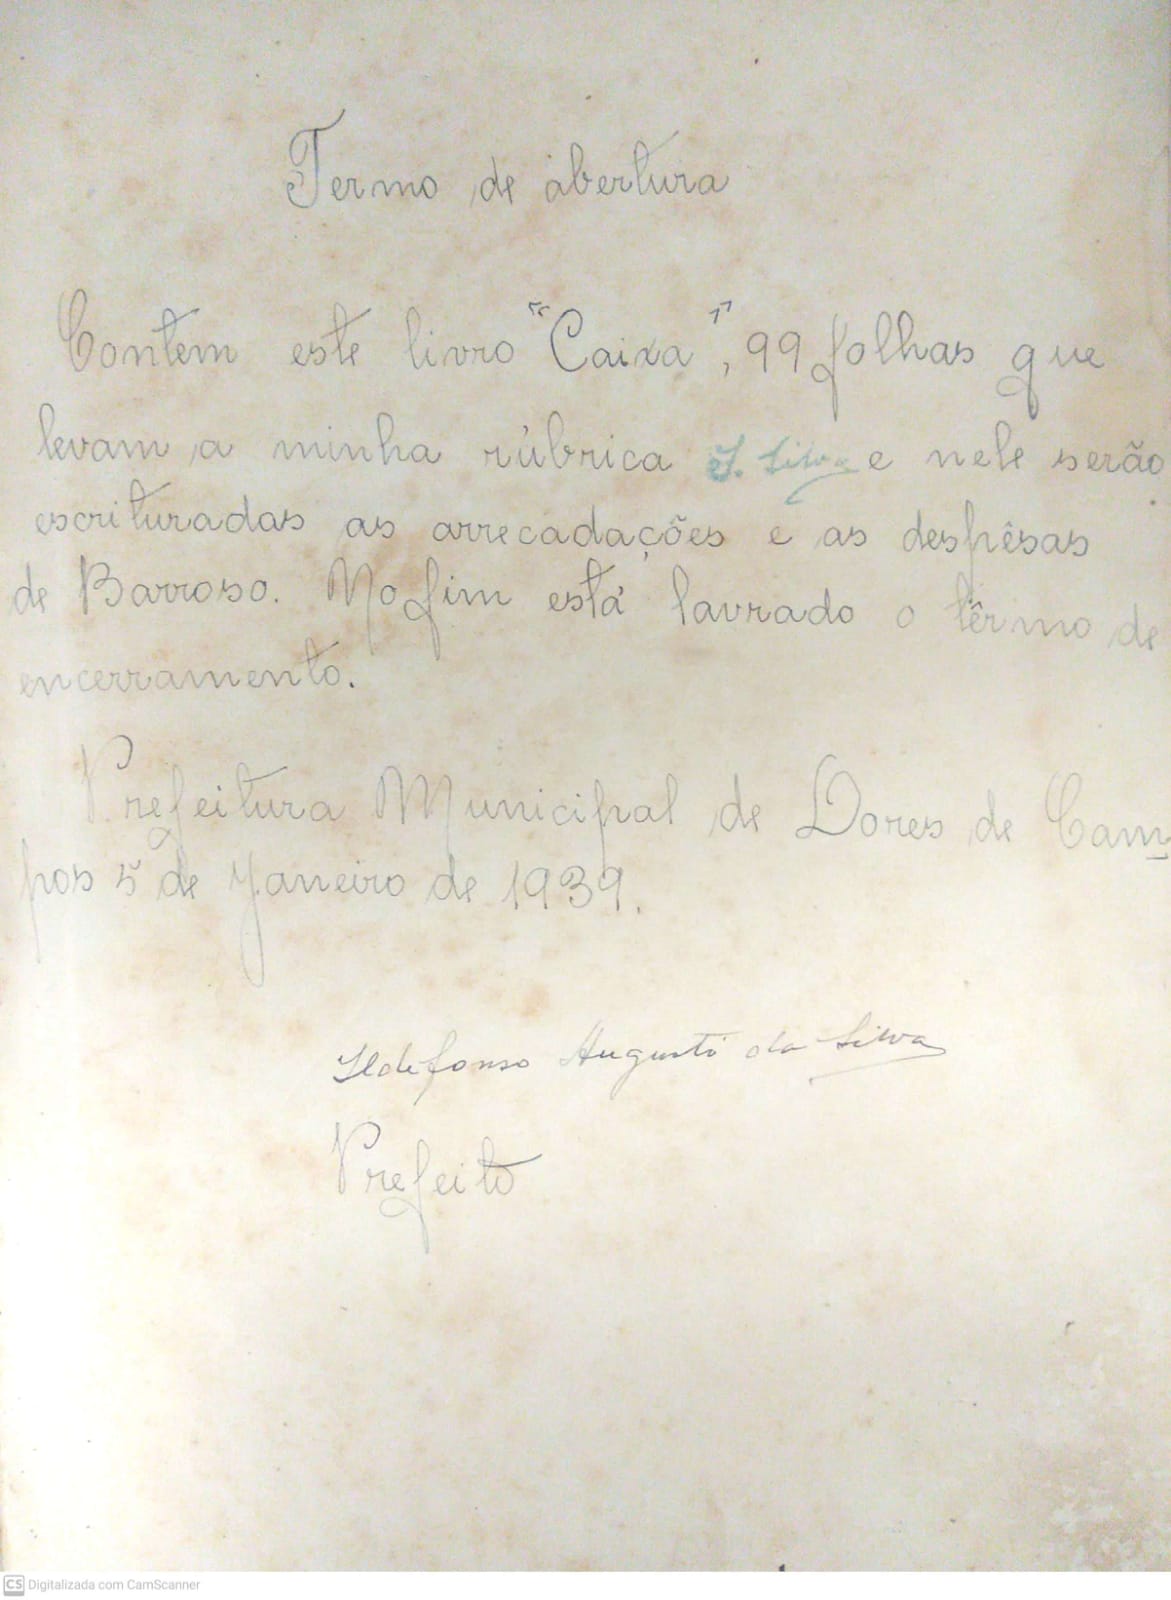 Termo de abertura
Contem este livro "Caixa", 99 folhas que
levam a minha rúbrica I. Silva e nele serão
escrituradas as arrecadações e as despêsas
de Barroso. No fim está lavrado o têrmo de
encerramento.
Prefeitura Municipal de Dores de Cam-
pos 5 de Janeiro de 1939.
Ildefonso Augusto da Silva
Prefeito
CS Digitalizada com CamScanner